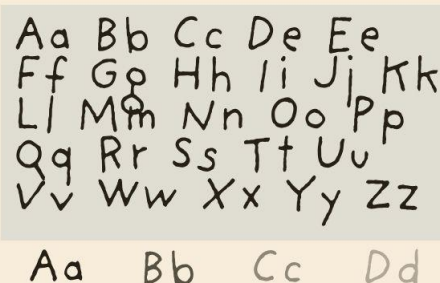 Aa Bb Cc De Ee
Ff Gg Hh Ii Jj Kk
Ll Mm Nn Oo Pp
Qq Rr Ss Tt Uu
Vv Ww Xx Yy Zz
Aa Bb Cc Dd